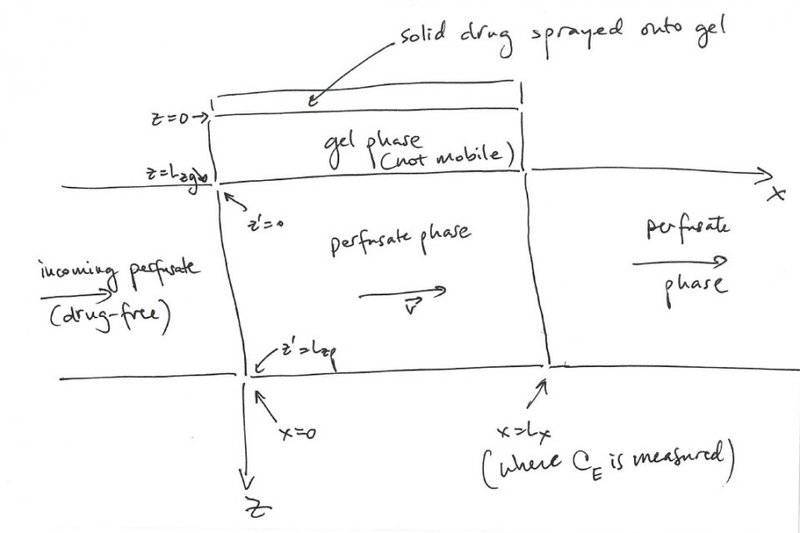 solid drug sprayed onto gel
z=0
gel phase
(not mobile)
z=Lzg
x
z'=0
perfusate phase
perfusate
phase
incoming perfusate
(drug-free)
v
z'=Lzp
x=0
x=Lx
(where CE is measured)
z